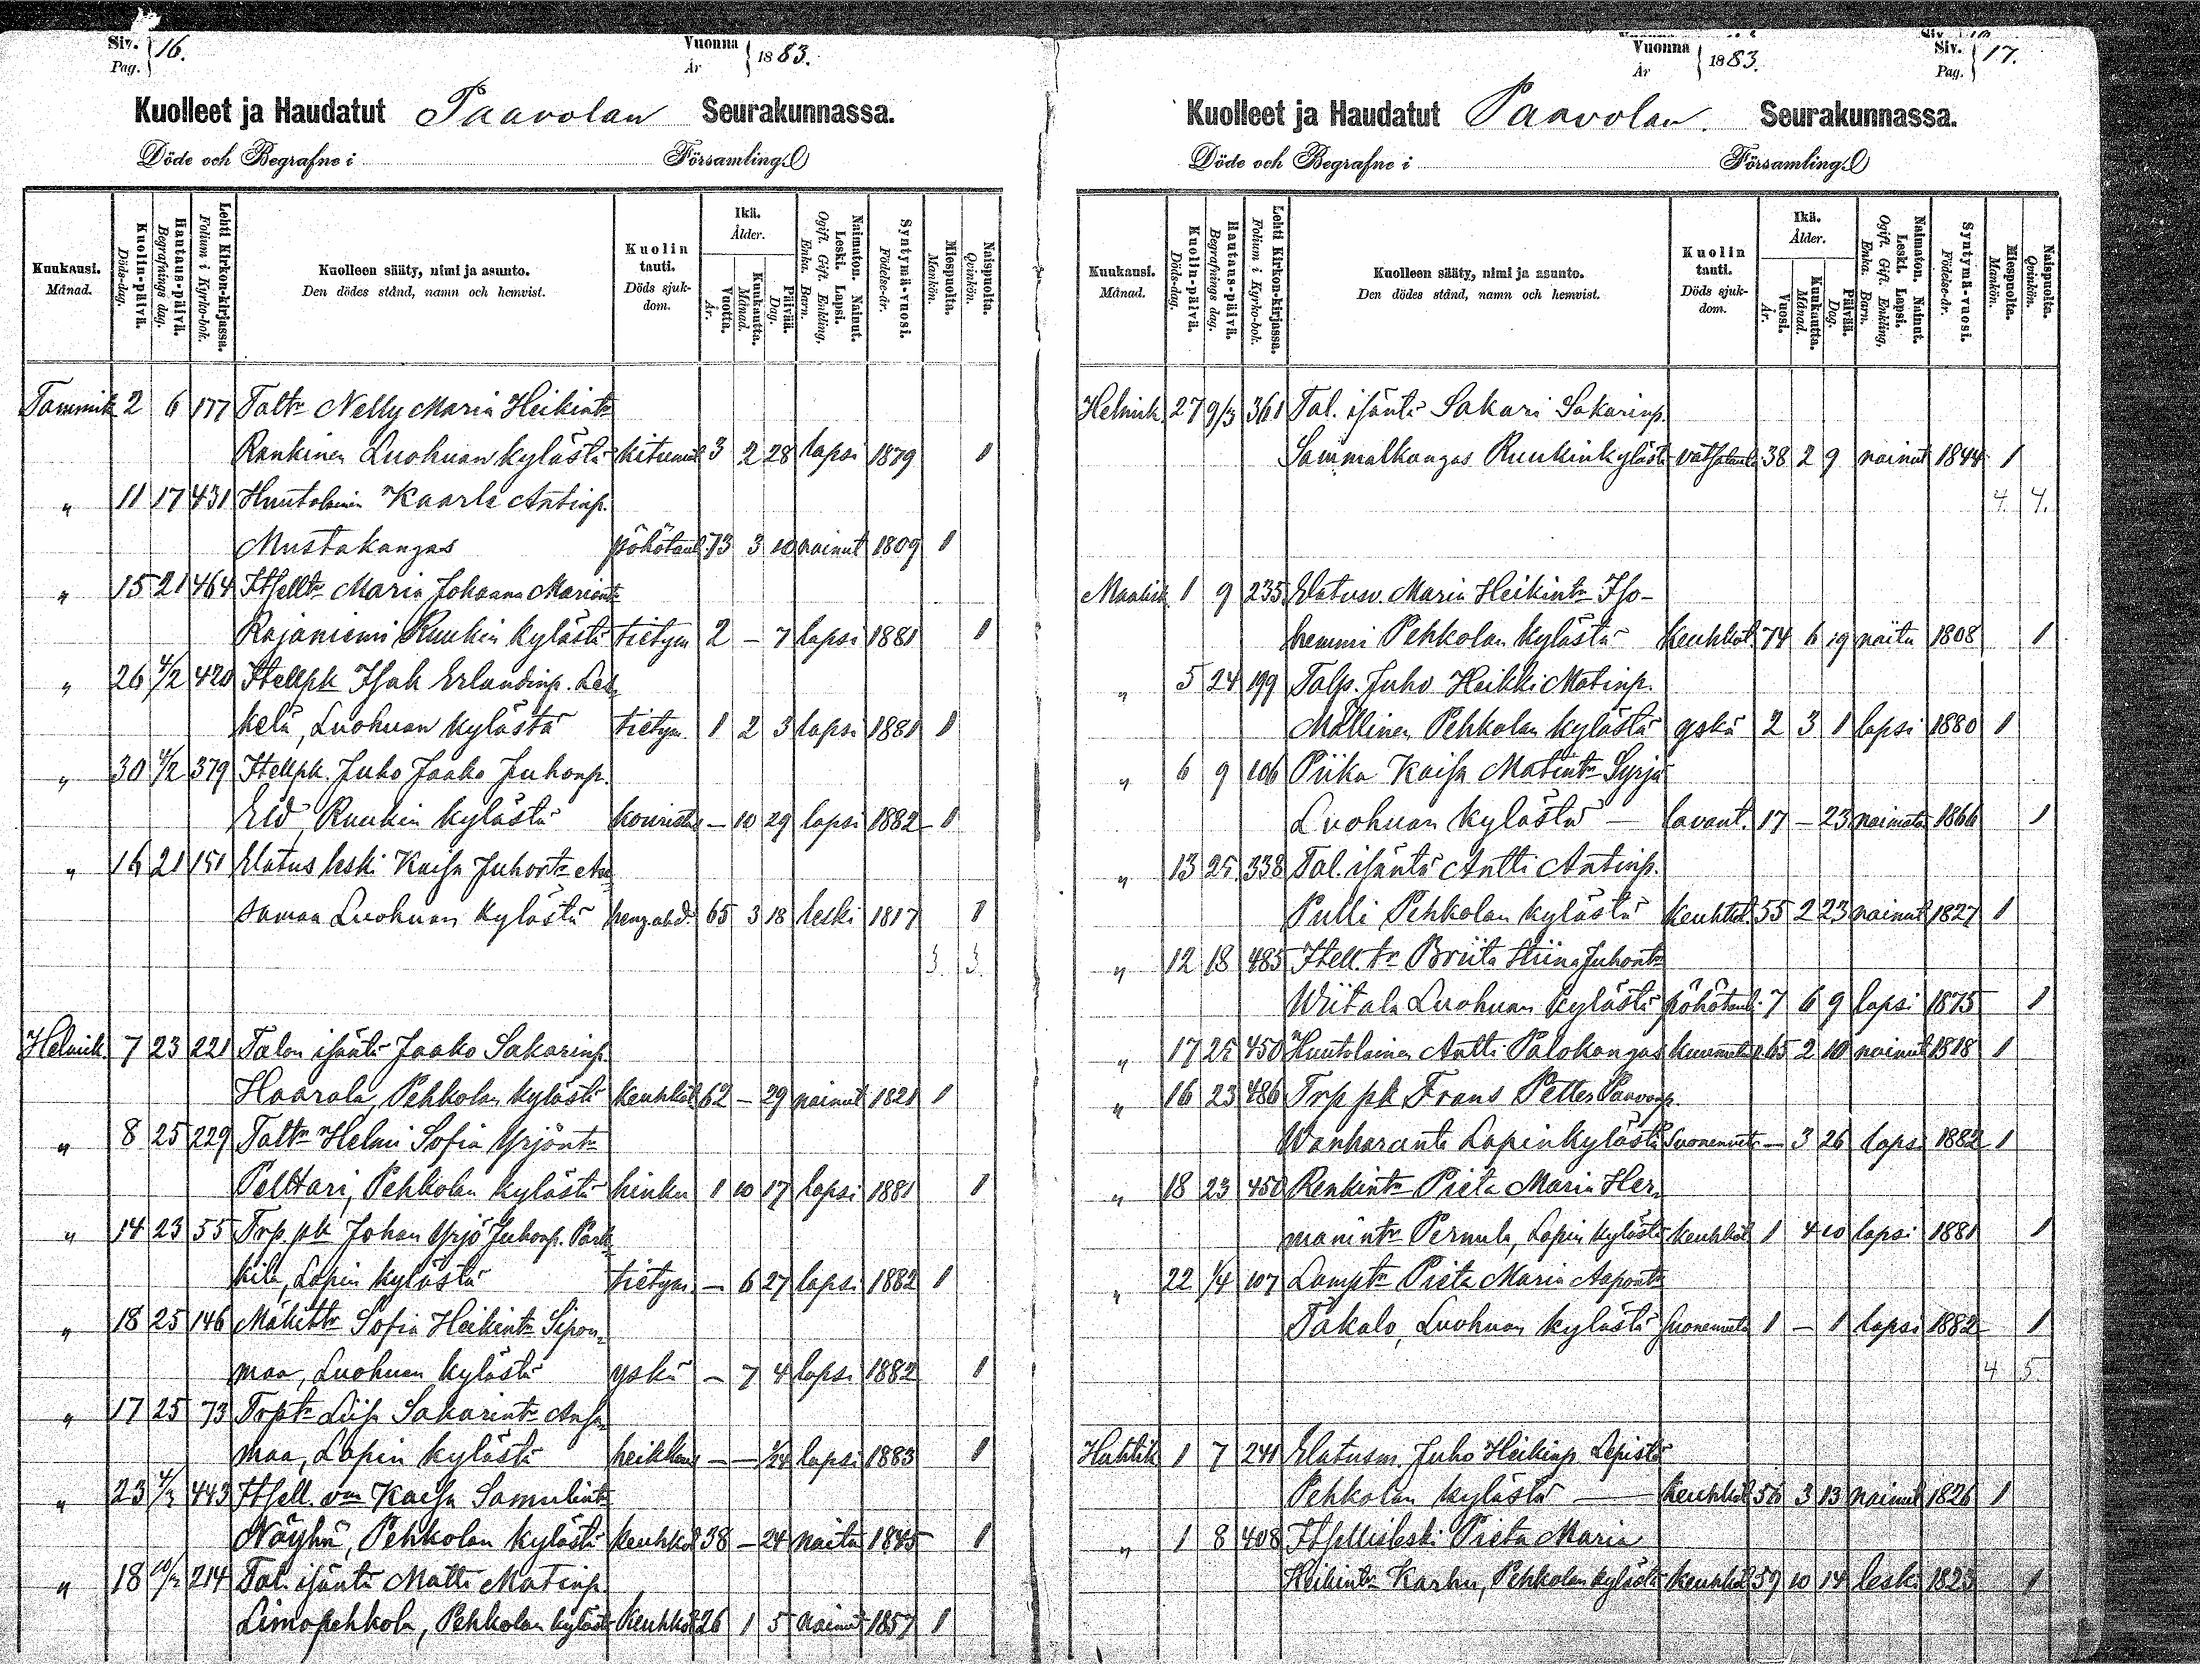 Siv. Pag. 16.
Vuonna År 1883.
Kuolleet ja Haudatut Paavolan Seurakunnassa.
Döde och Begrafne i Församling.
Kuukausi. Månad.
Kuolin-päivä. Döds-dag.
Hautaus-päivä. Begrafnings dag.
Lehti Kirkon-kirjassa. Folium i Kyrko-bok.
Kuolleen sääty, nimi ja asunto. Den dödes stånd, namn och hemvist.
Kuolin tauti. Döds sjukdom.
Ikä. Ålder.
Vuotta. År.
Kuukautta. Månad.
Päivää. Dag.
Naimaton. Nainut. Leski. Lapsi. Ogift. Gift. Enkling, Enka. Barn.
Syntymä-vuosi. Födelse-år.
Miespuolta. Mankön.
Naispuolta. Qvinkön.
Tammik 2 6 177 Taltr Nelly Maria Heikintr
Rankinen Luohuan kylästä 3 2 28 lapsi 1879 1
" 11 17 431 Kaarle Antinp.
Mustakangas pöhötaut 73 3 10 nainut 1809 1
" 15 21 464 Itselltr Maria Johanna
Rajaniemi Ruukin kylästä tietym 2 — 7 lapsi 1881 1
" 26 4/2 420 Itsellpk Isak Erlandinp. Les-
kelä, Luohuan kylästä tietym. 1 2 3 lapsi 1881 1
" 30 4/2 379 Itsellpk. Juho Jaako Juhonp.
Ruukin kylästä kouristus — 10 29 lapsi 1882 1
" 16 21 151 Elatus leski Kaisa Juhontr
Luohuan kylästä heng.ahd. 65 3 18 leski 1817 1
3. 3.
Helmik. 7 23 221 Talon isäntä Jaako Sakarinp.
Haarala, Pehkolan kylästä keuhkot. 62 — 29 nainut 1821 1
" 8 25 229 Taltr Helmi Sofia Yrjöntr
Pelttari, Pehkolan kylästä hinku 1 10 17 lapsi 1881 1
" 14 23 55 Trp.pk Johan Yrjö Juhonp. Park-
kila, Lapin kylästä tietym. — 6 27 lapsi 1882 1
" 18 25 146 Mäkittr Sofia Heikintr Sipon-
maa, Luohuan kylästä yskä — 7 4 lapsi 1882 1
" 17 25 73 Trptr Liisa Sakarintr Ansa-
maa, Lapin kylästä heikkous — — 1/24 lapsi 1883 1
" 23 4/3 443 Itsell. vm Kaisa Samulintr
Näyhä, Pehkolan kylästä keuhkot 38 — 24 naitu 1845 1
" 18 10/3 214 Tal. isäntä Matti Matinp.
Limopehkola, Pehkolan kyläst. keuhkot 26 1 5 nainut 1857 1
Vuonna År 1883.
Siv. Pag. 17.
Kuolleet ja Haudatut Paavolan. Seurakunnassa.
Döde och Begrafne i Församling.
Kuukausi. Månad.
Kuolin-päivä. Döds-dag.
Hautaus-päivä. Begrafnings dag.
Lehti Kirkon-kirjassa. Folium i Kyrko-bok.
Kuolleen sääty, nimi ja asunto. Den dödes stånd, namn och hemvist.
Kuolin tauti. Döds sjukdom.
Ikä. Ålder.
Vuosi. År.
Kuukautta. Månad.
Päivää. Dag.
Naimaton. Nainut. Leski. Lapsi. Ogift. Gift. Enkling, Enka. Barn.
Syntymä-vuosi. Födelse-år.
Miespuolta. Mankön.
Naispuolta. Qvinkön.
Helmik. 27 9/3 361 Tal. isäntä Sakari Sakarinp.
Sammalkangas Ruukinkylästä vatsataut. 38 2 9 nainut 1844 1
4. 4.
Maalisk. 1 9 235 Elatusv. Maria Heikintr Iso-
hemmi Pehkolan kylästä keuhkot. 74 6 19 naitu 1808 1
" 5 24 199 Talp. Juho Heikki Matinp.
Mällinen Pehkolan kylästä yskä 2 3 1 lapsi 1880 1
" 6 9 106 Piika Kaisa Matintr Syrjä
Luohuan kylästä — lavant. 17 — 23 naimaton 1866 1
" 13 25. 338 Tal. isäntä Antti Antinp.
Pulli Pehkolan kylästä keuhkot. 55 2 23 nainut 1827 1
" 12 18 485 Itsell.tr Briita Stiina Juhontr
Wiitala Luohuan kylästä pöhötaut. 7 6 9 lapsi 1875 1
" 17 25 450 Huutolainen Antti Palokangas 65 2 10 nainut 1818 1
" 16 23 486 Trp pk Frans Petter Paavonp.
Wanharanta Lapinkylästä Suonenveto — 3 26 lapsi 1882 1
" 18 23 450 Renkintr Pieta Maria Her-
manintr Pernula, Lapin kylästä keuhkot 1 4 10 lapsi 1881 1
" 22 1/4 107 Lamptr Pieta Maria Aapontr
Takalo, Luohuan kylästä Suonenveto 1 — 1 lapsi 1882 1
4 5
Huhtik 1 7 241 Elatusm. Juho Heikinp Lepistö
Pehkolan kylästä — keuhkot 56 3 13 nainut 1826 1
" 1 8 408 Itsellisleski Pieta Maria
Heikintr Karhu, Pehkolan kylästä keuhkot 59 10 14 leski 1823 1